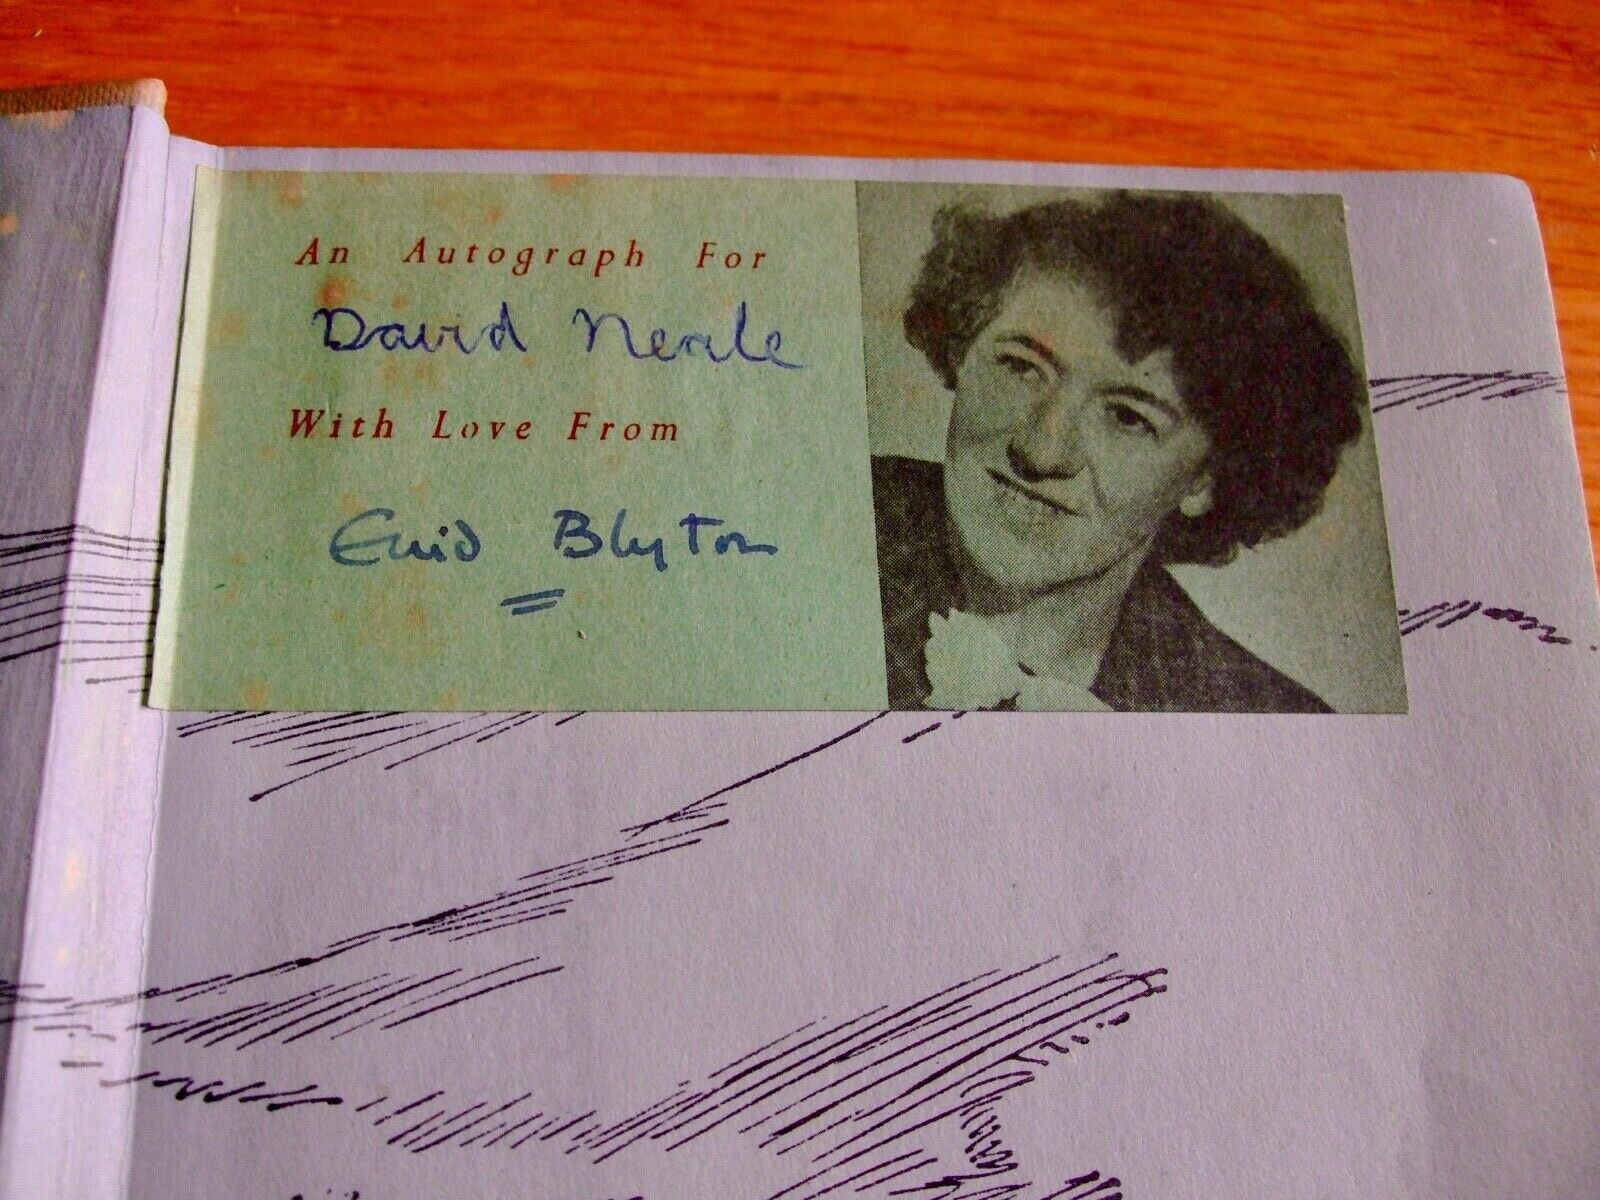 An Autograph For
David Neale
With Love From
Enid Blyton